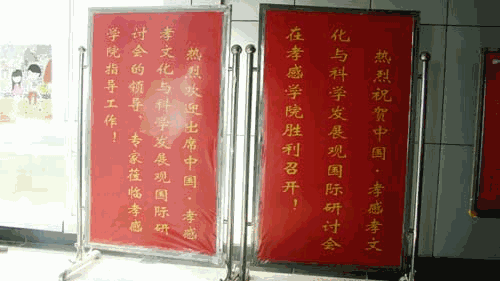 热烈祝贺中国·孝感孝文
化与科学发展观国际研讨会
在孝感学院胜利召开！
热烈欢迎出席中国·孝感
孝文化与科学发展观国际研
讨会的领导、专家莅临孝感
学院指导工作！